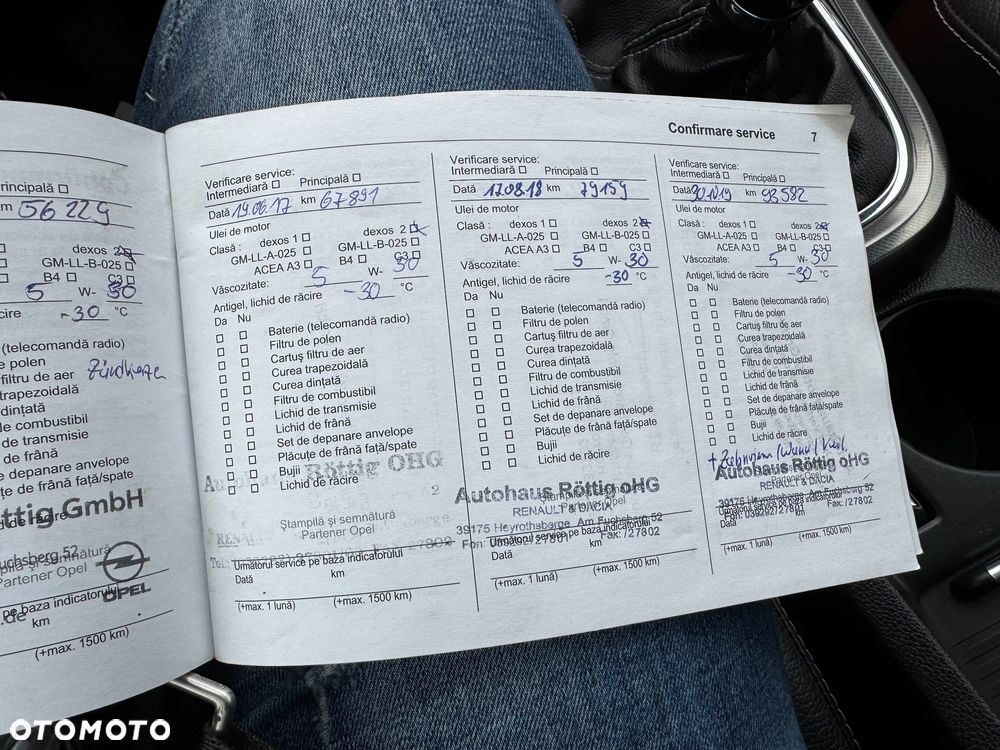 Confirmare service 7
rincipală ☐
km 56229
dexos 2
GM-LL-B-025 ☐
B4 ☐ C3 ☐
5 W- 30
cire -30 °C
(telecomandă radio)
e polen
filtru de aer
trapezoidală
dințată
de combustibil
de transmisie
de frână
e depanare anvelope
țe de frână față/spate
de răcire
ttig GmbH
uchsberg 52
ila și semnătură
Partener Opel
OPEL
pe baza indicatorului
.de
km
(+max. 1500 km)
Verificare service:
Intermediară ☐ Principală ☐
Dată 19.06.17 km 67891
Ulei de motor
Clasă : dexos 1 ☐ dexos 2
GM-LL-A-025 ☐ GM-LL-B-025 ☐
ACEA A3 ☐ B4 ☐ C3 ☐
Vâscozitate: 5 W- 30
Antigel, lichid de răcire -30 °C
Da Nu
☐ ☐ Baterie (telecomandă radio)
☐ ☐ Filtru de polen
☐ ☐ Cartuș filtru de aer
☐ ☐ Curea trapezoidală
☐ ☐ Curea dințată
☐ ☐ Filtru de combustibil
☐ ☐ Lichid de transmisie
☐ ☐ Lichid de frână
☐ ☐ Set de depanare anvelope
☐ ☐ Plăcuțe de frână față/spate
☐ ☐ Bujii
☐ ☐ Lichid de răcire
Röttig OHG
Ștampilă și semnătură
Partener Opel
Următorul service pe baza indicatorului
Dată km
(+max. 1 lună) (+max. 1500 km)
Verificare service:
Intermediară ☐ Principală ☐
Dată 17.08.18 km 79159
Ulei de motor
Clasă : dexos 1 ☐ dexos 2
GM-LL-A-025 ☐ GM-LL-B-025 ☐
ACEA A3 ☐ B4 ☐ C3 ☐
Vâscozitate: 5 W- 30
Antigel, lichid de răcire -30 °C
Da Nu
☐ ☐ Baterie (telecomandă radio)
☐ ☐ Filtru de polen
☐ ☐ Cartuș filtru de aer
☐ ☐ Curea trapezoidală
☐ ☐ Curea dințată
☐ ☐ Filtru de combustibil
☐ ☐ Lichid de transmisie
☐ ☐ Lichid de frână
☐ ☐ Set de depanare anvelope
☐ ☐ Plăcuțe de frână față/spate
☐ ☐ Bujii
☐ ☐ Lichid de răcire
Autohaus Röttig oHG
Ștampilă și semnătură
RENAULT & DACIA
Partener Opel
39175 Heyrothsberge Am Fuchsberg 52
Următorul service pe baza indicatorului
Fon: 27801 Fax: /27802
Dată km
(+max. 1 lună) (+max. 1500 km)
Verificare service:
Intermediară ☐ Principală ☐
Dată 30.10.19 km 93582
Ulei de motor
Clasă : dexos 1 ☐ dexos 2
GM-LL-A-025 ☐ GM-LL-B-025 ☐
ACEA A3 ☐ B4 ☐ C3 ☐
Vâscozitate: 5 W- 30
Antigel, lichid de răcire -30 °C
Da Nu
☐ ☐ Baterie (telecomandă radio)
☐ ☐ Filtru de polen
☐ ☐ Cartuș filtru de aer
☐ ☐ Curea trapezoidală
☐ ☐ Curea dințată
☐ ☐ Filtru de combustibil
☐ ☐ Lichid de transmisie
☐ ☐ Lichid de frână
☐ ☐ Set de depanare anvelope
☐ ☐ Plăcuțe de frână față/spate
☐ ☐ Bujii
☐ ☐ Lichid de răcire
Autohaus Röttig oHG
Partener Opel
RENAULT & DACIA
39175 Heyrothsberge Am Fuchsberg 52
Următorul service pe baza indicatorului
Fon: 039292/27801 Fax: /27802
Dată km
(+max. 1 lună) (+max. 1500 km)
OTOMOTO